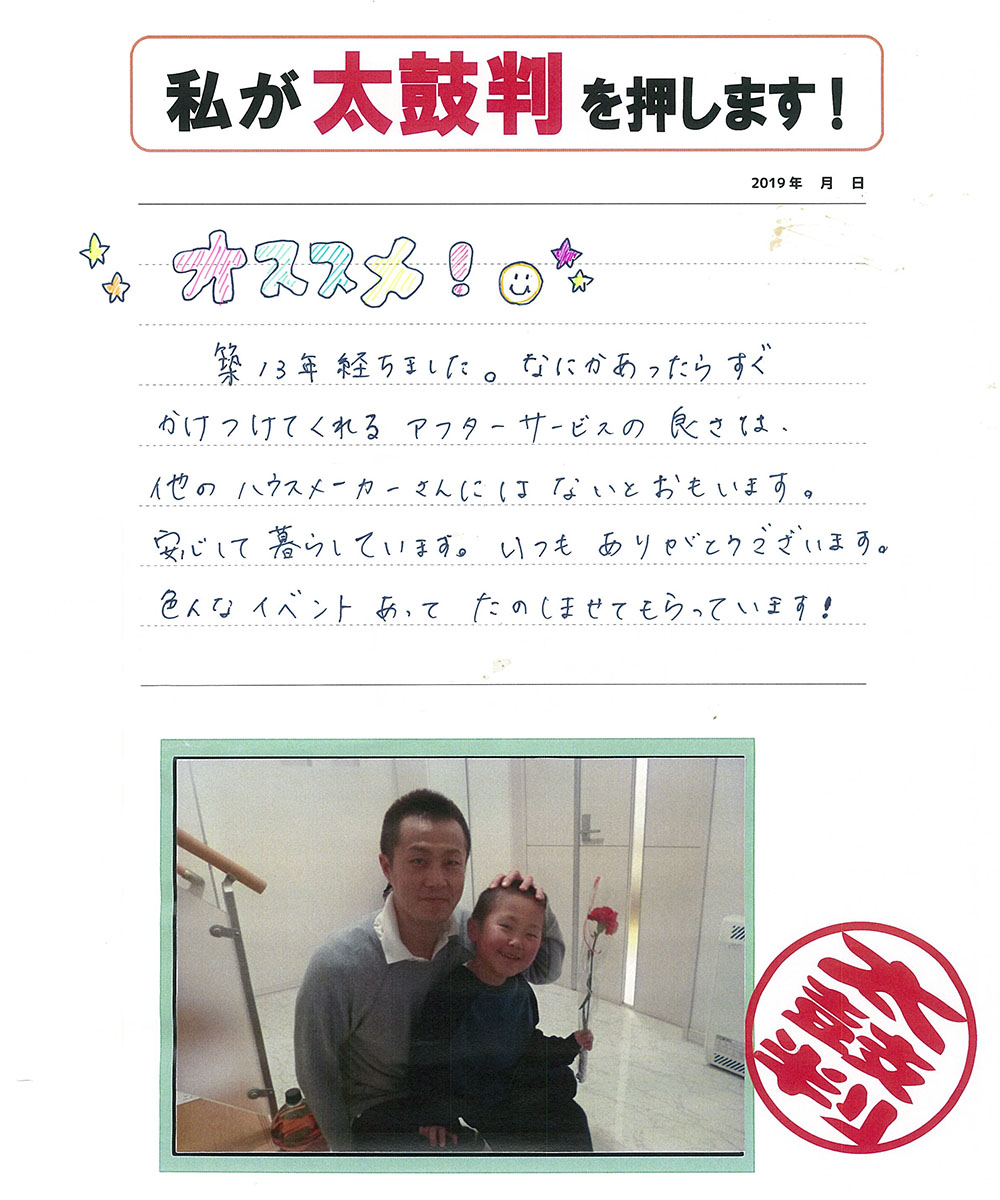 私が太鼓判を押します!
2019年 月 日
オススメ!
築13年経ちました。なにかあったらすぐ
かけつけてくれるアフターサービスの良さは、
他のハウスメーカーさんにはないとおもいます。
安心して暮らしています。いつもありがとうございます。
色んなイベントあってたのしませてもらっています!
太鼓判